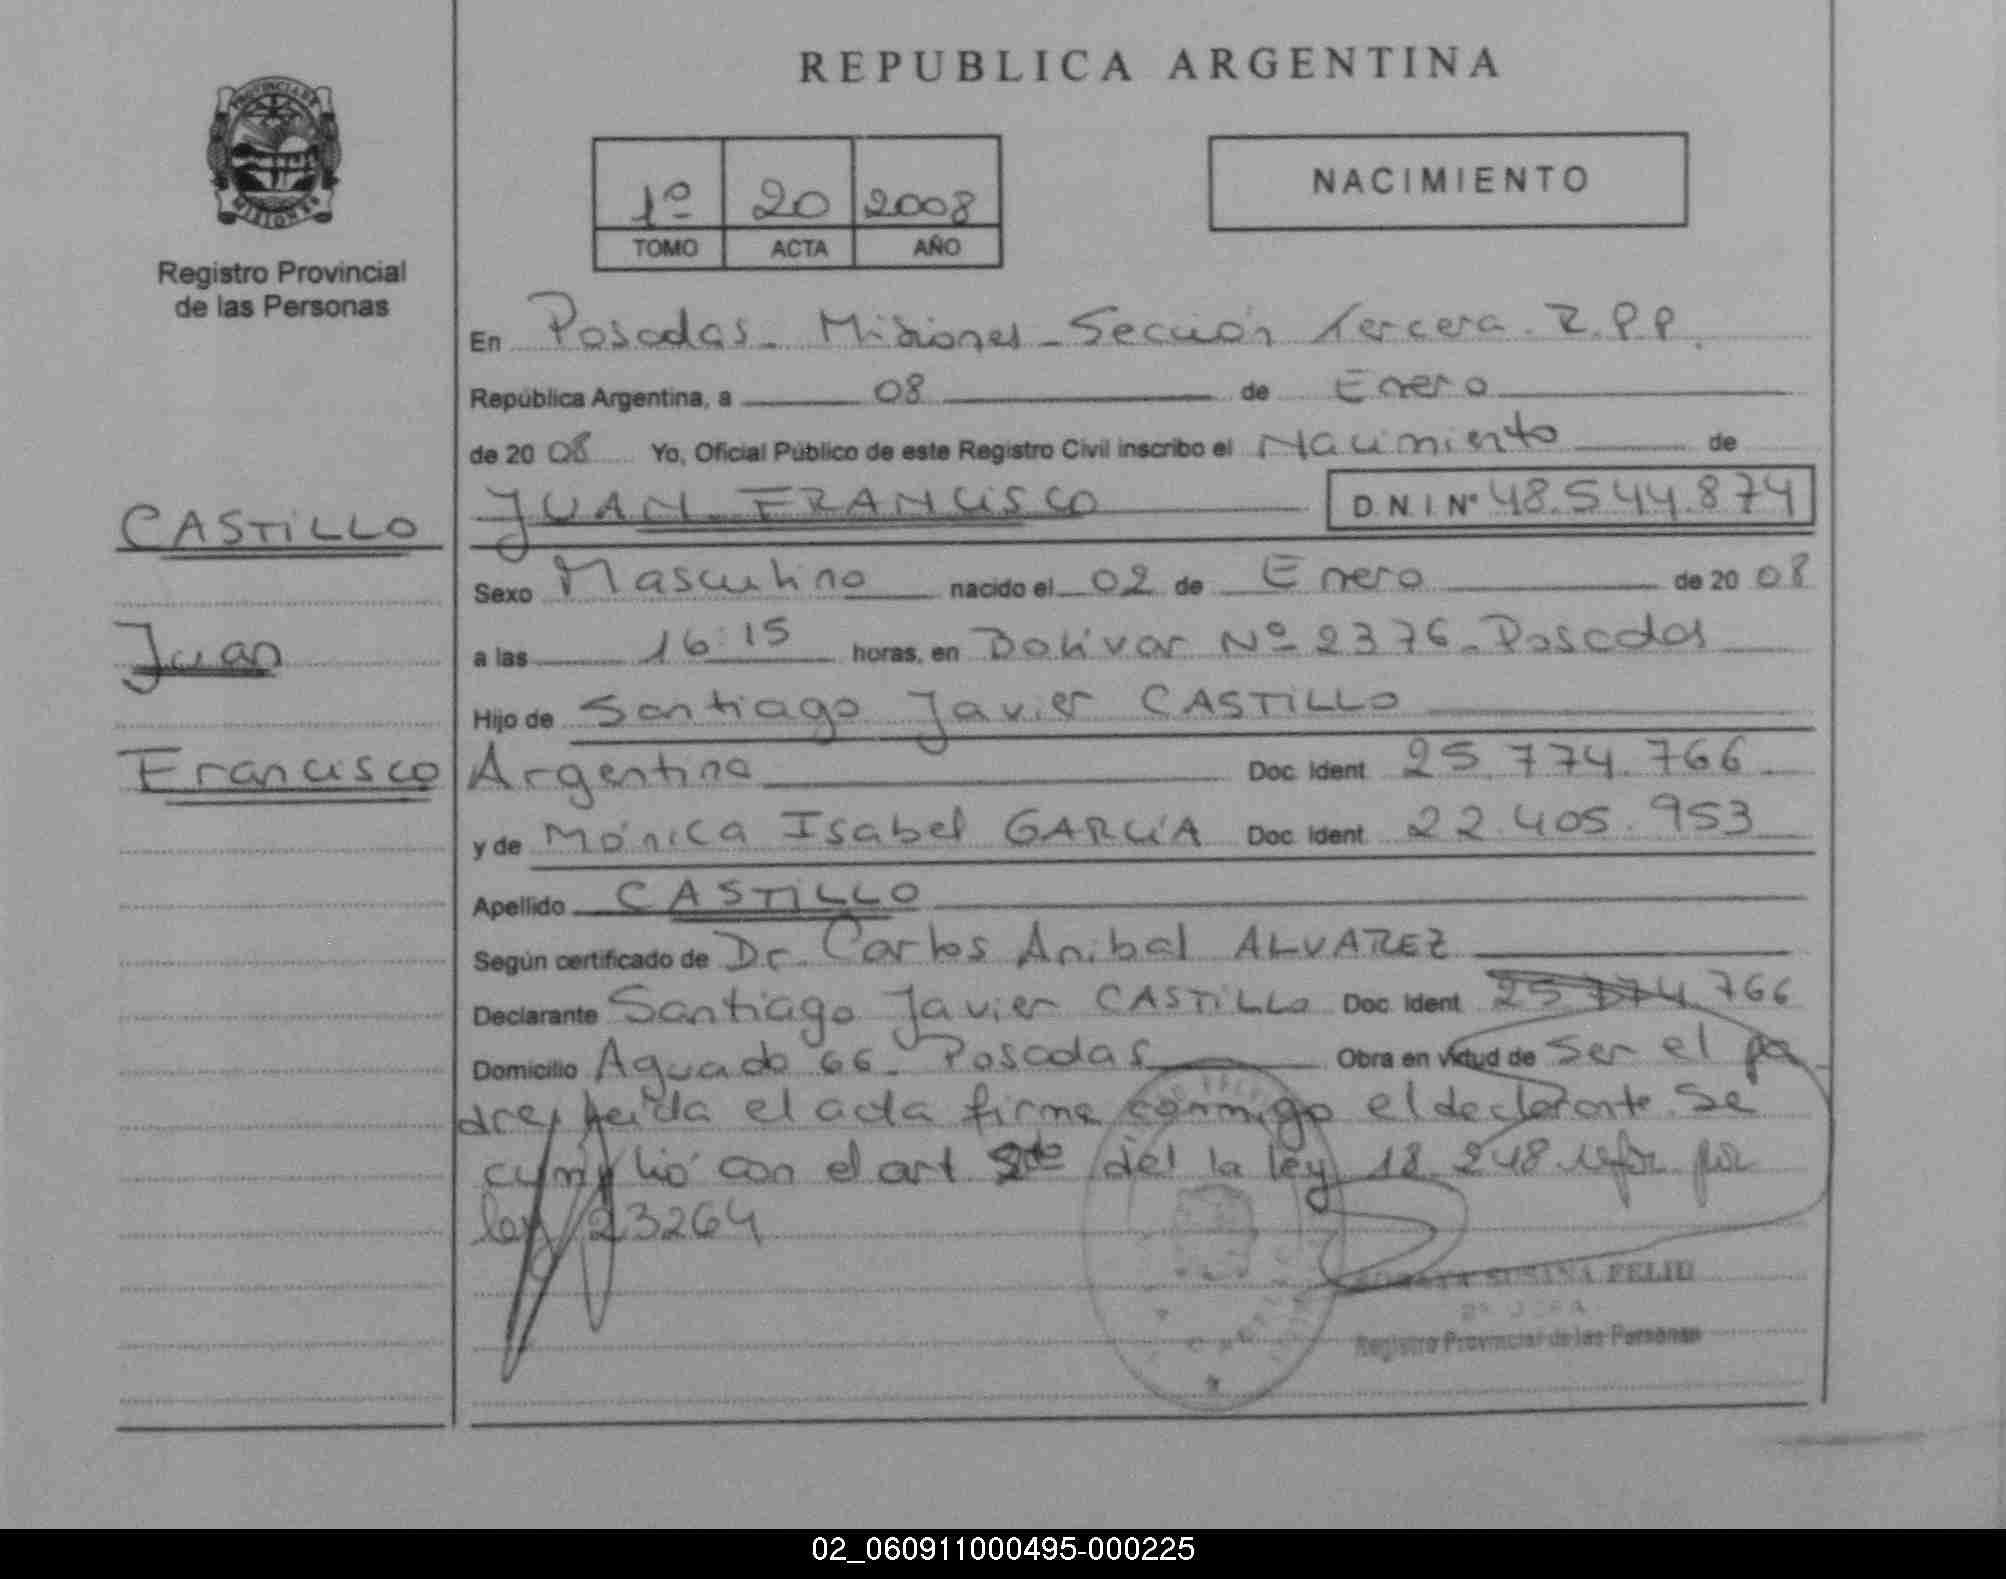 REPUBLICA ARGENTINA
PROVINCIA DE
MISIONES
Registro Provincial
de las Personas
1º 20 2008
TOMO ACTA AÑO
NACIMIENTO
En Posadas - Misiones - Sección Tercera - R.P.P.
República Argentina, a 08 de Enero
de 2008 Yo, Oficial Público de este Registro Civil inscribo el Nacimiento de
JUAN FRANCISCO D.N.I Nº 48.544.874
CASTILLO
Juan
Francisco
Sexo Masculino nacido el 02 de Enero de 2008
a las 16:15 horas, en Bolívar Nº 2376 - Posadas
Hijo de Santiago Javier CASTILLO
Argentino Doc. Ident. 25.774.766
y de Mónica Isabel GARCíA Doc. Ident. 22.405.953
Apellido CASTILLO
Según certificado de Dr. Carlos Anibal ALVAREZ
Declarante Santiago Javier CASTILLO Doc. Ident. 25.774.766
Domicilio Aguado 66 - Posadas Obra en virtud de ser el pa
dre, leída el acta firma conmigo el declarante. Se
cumplió con el art del la ley 18.248 por
ley 23264
SUSANA FELIU
Registro Provincial de las Personas
02_060911000495-000225